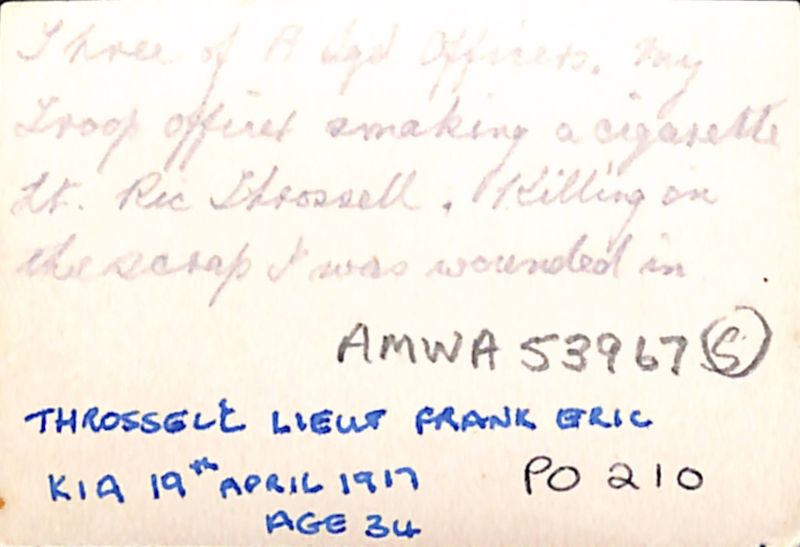 Three of A Sqd Officers. My
Troop officer smoking a cigarette
Lt. Ric Throssell. Killing on
the scrap I was wounded in
AMWA 53967 S
THROSSELL LIEUT FRANK ERIC
KIA 19th APRIL 1917 PO 210
AGE 34